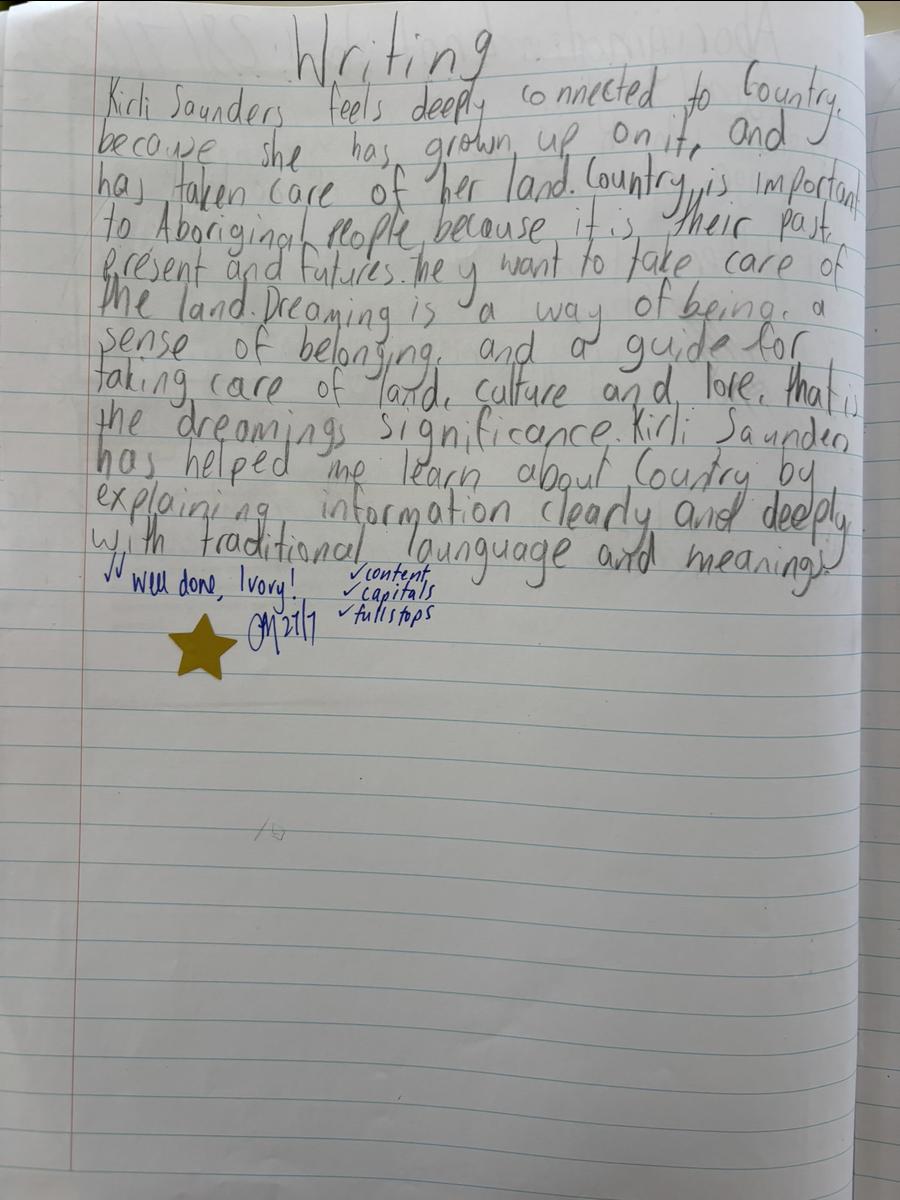 Writing
Kirli Saunders feels deeply connected to Country,
because she has grown up on it, and
has taken care of her land. Country is important
to Aboriginal People because it is their past,
present and futures. They want to take care of
the land. Dreaming is a way of being, a
sense of belonging, and a guide for
taking care of land, culture and lore, that is
the dreamings significance. Kirli Saunders
has helped me learn about Country by
explaining information clearly and deeply
with traditional launguage and meanings.
✓✓ Well done, Ivory! ✓content
✓capitals
27/7 ✓fullstops